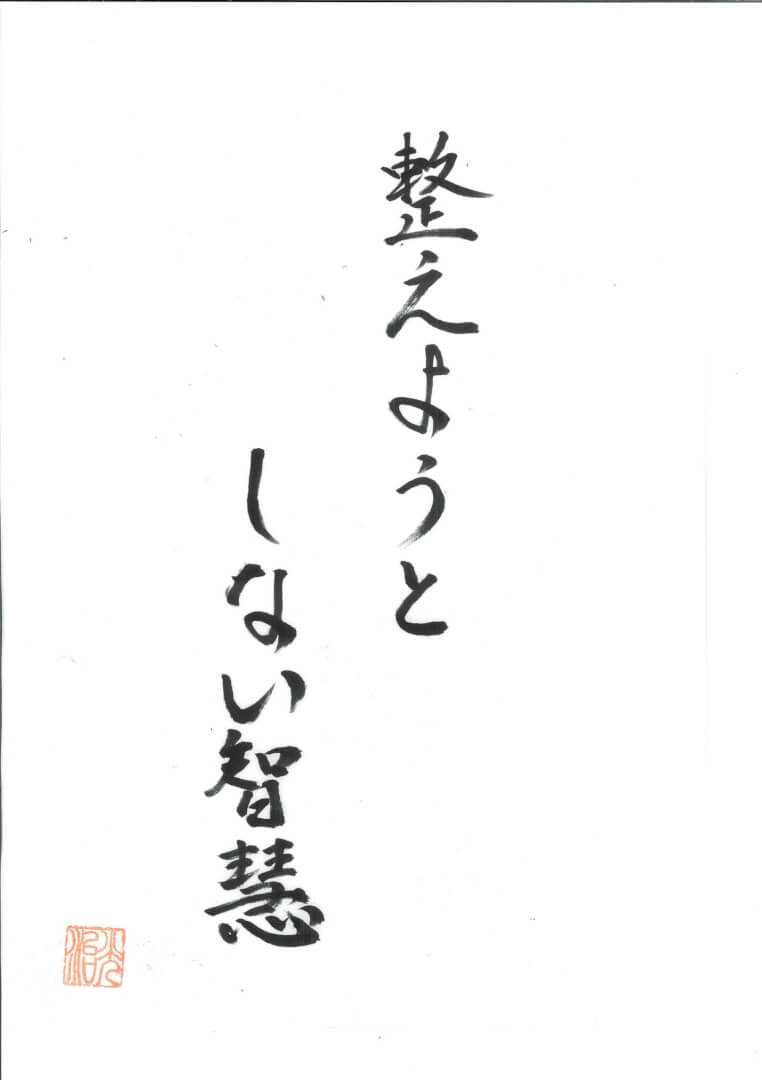 整えようと
しない智慧